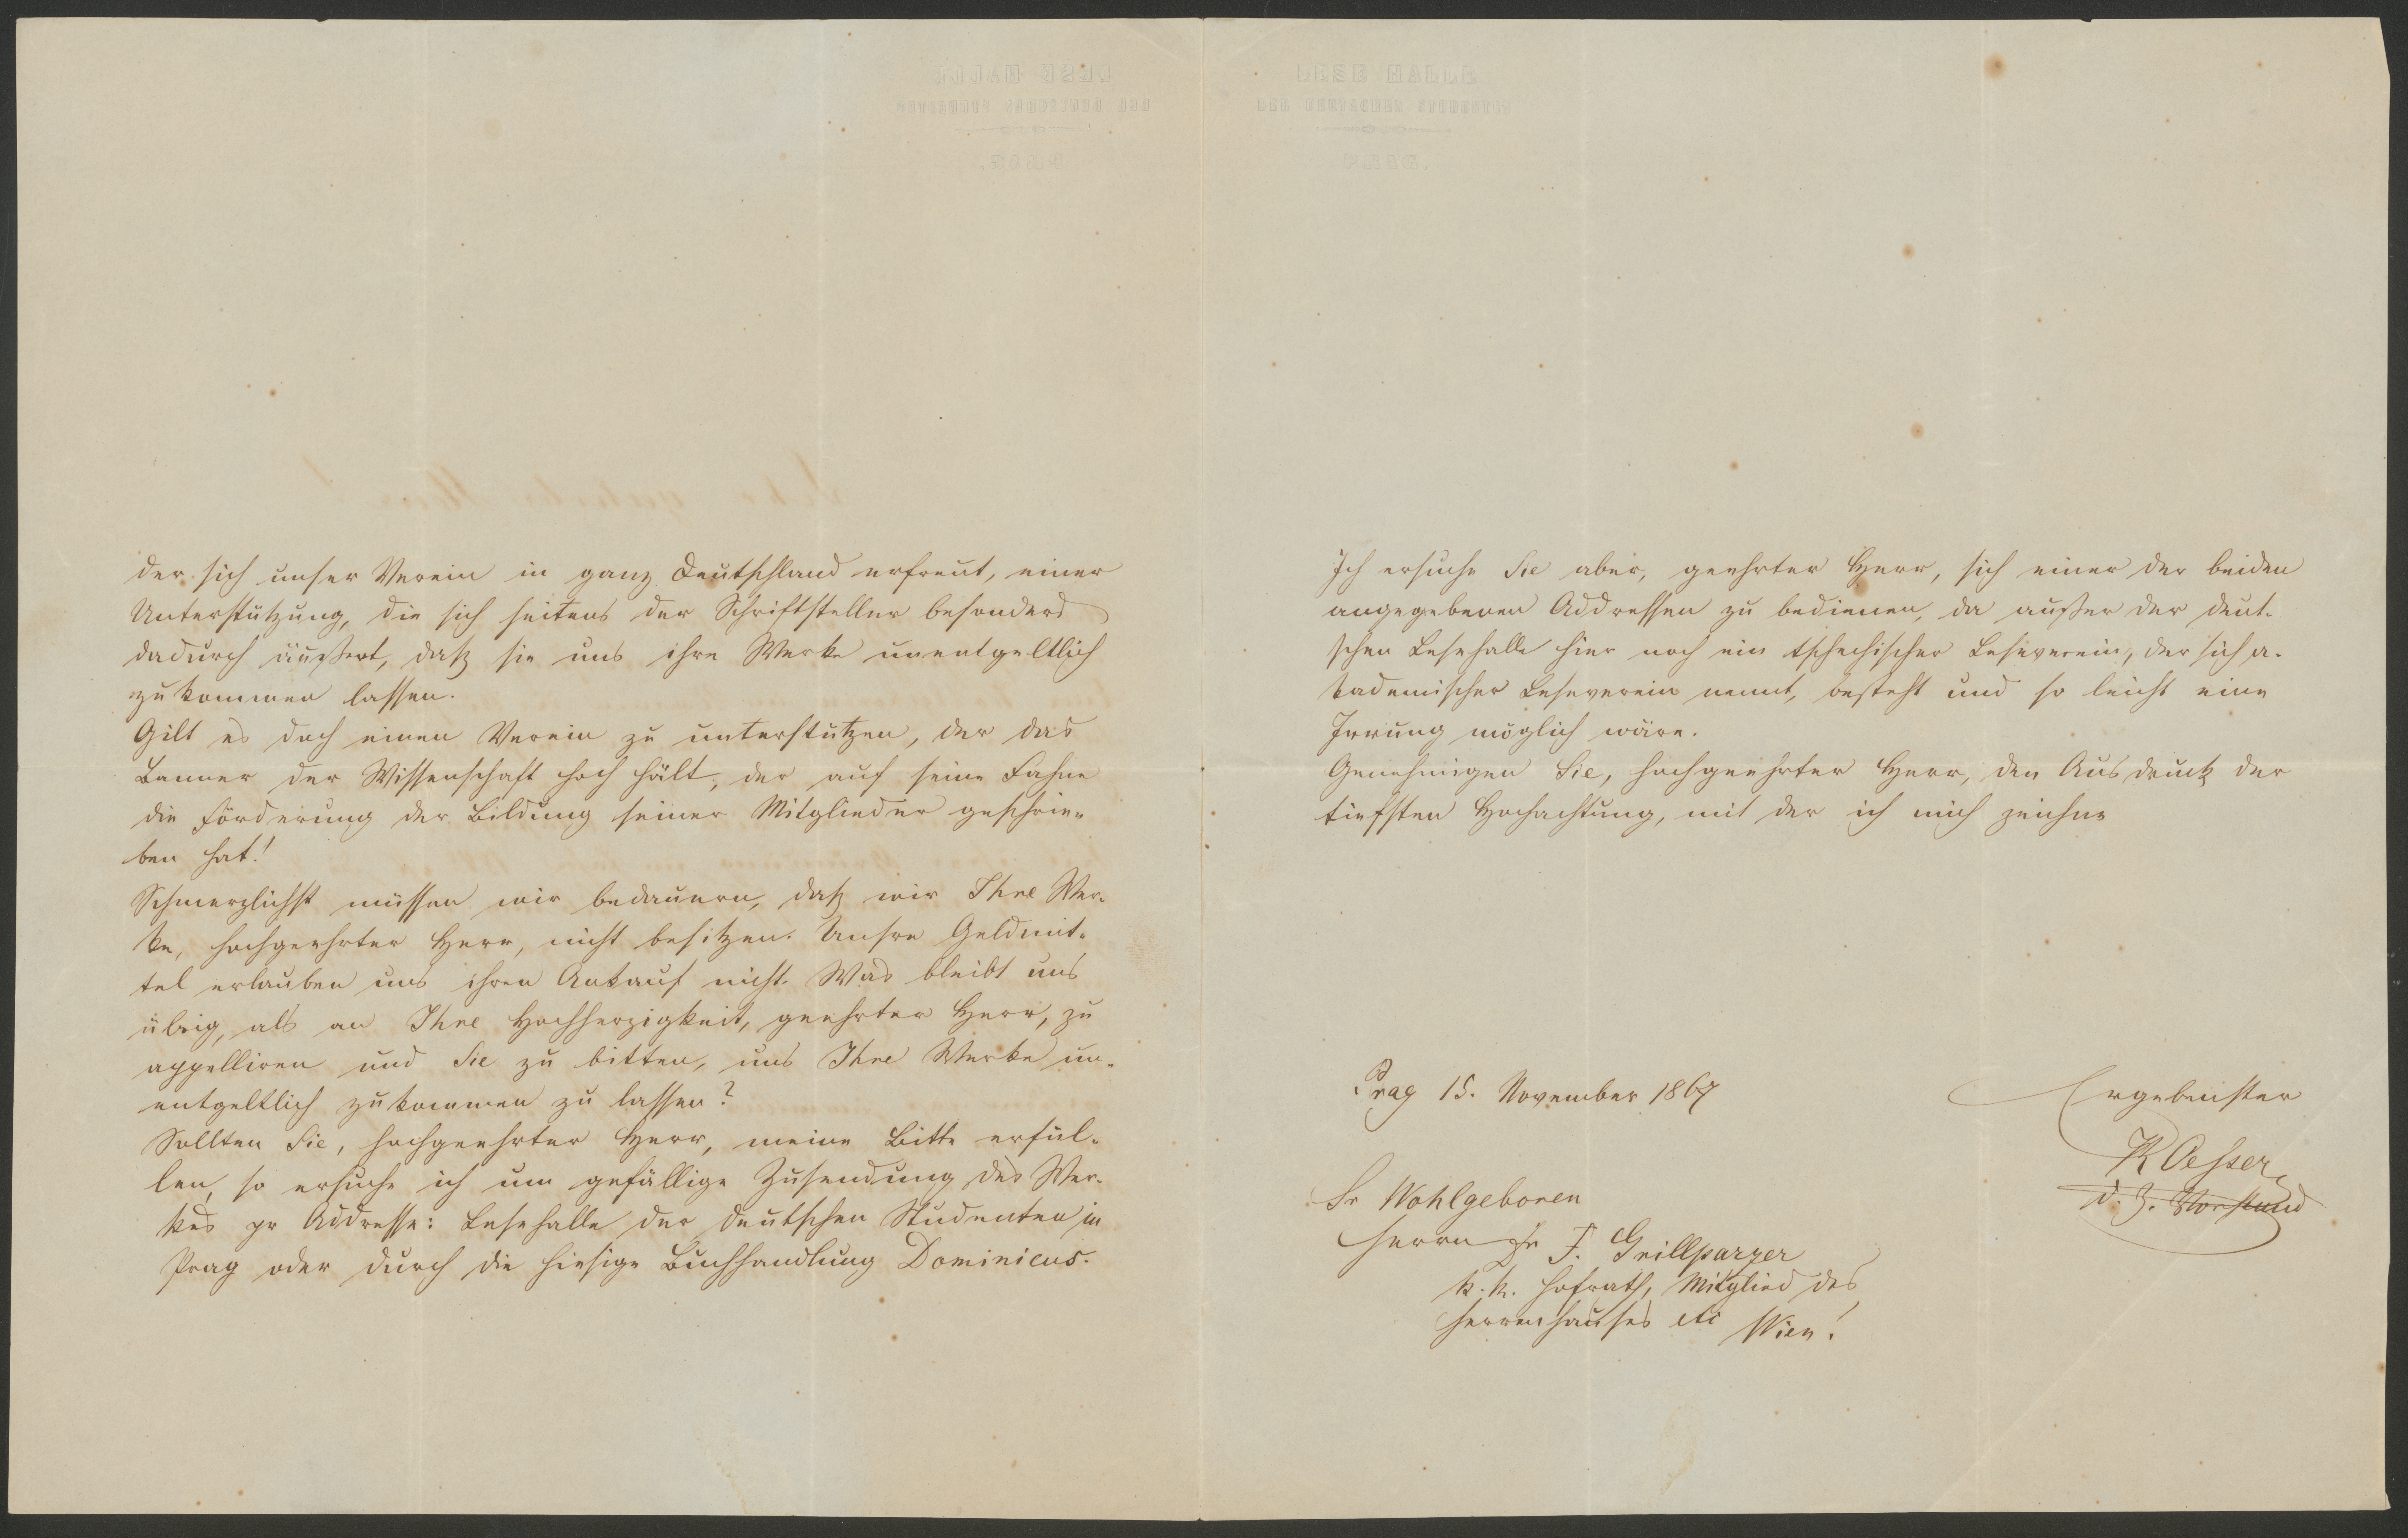 LESE HALLE
DER DEUTSCHEN STUDENTEN
PRAG.
der sich unser Verein in ganz Deutschland erfreut, einer
Unterstützung, die sich seitens der Schriftsteller besonders
dadurch äußert, daß sie uns ihre Werke unentgeltlich
zukommen lassen.
Gilt es doch einen Verein zu unterstützen, der das
Banner der Wissenschaft hoch hält, der auf seine Fahne
die Förderung der Bildung seiner Mitglieder geschrie-
ben hat!
Schmerzlichst müssen wir bedauern, daß wir Ihre Wer-
ke, hochgeehrter Herr, nicht besitzen. Unsre Geldmit-
tel erlauben uns ihren Ankauf nicht. Was bleibt uns
übrig, als an Ihre Hochherzigkeit, geehrter Herr, zu
appelliren und Sie zu bitten, uns Ihre Werke un-
entgeltlich zukommen zu lassen?
Sollten Sie, hochgeehrter Herr, meine Bitte erfül-
len, so ersuche ich um gefällige Zusendung des Wer-
kes pr Addresse: Lesehalle der deutschen Studenten in
Prag oder durch die hiesige Buchhandlung Dominicus.
Ich ersuche Sie aber, geehrter Herr, sich einer der beiden
angegebenen Addressen zu bedienen, da außer der deut-
schen Lesehalle hier noch ein tschechischer Leseverein, der sich a-
kademischer Leseverein nennt, besteht und so leicht eine
Irrung möglich wäre.
Genehmigen Sie, hochgeehrter Herr, den Ausdruck der
tiefsten Hochachtung, mit der ich mich zeichne
Prag 15. November 1867
Ergebenster
d. Z. Vorstand
Sr Wohlgeboren
Herrn Dr F. Grillparzer
k. k. Hofrath, Mitglied des
Herrenhauses etc Wien!